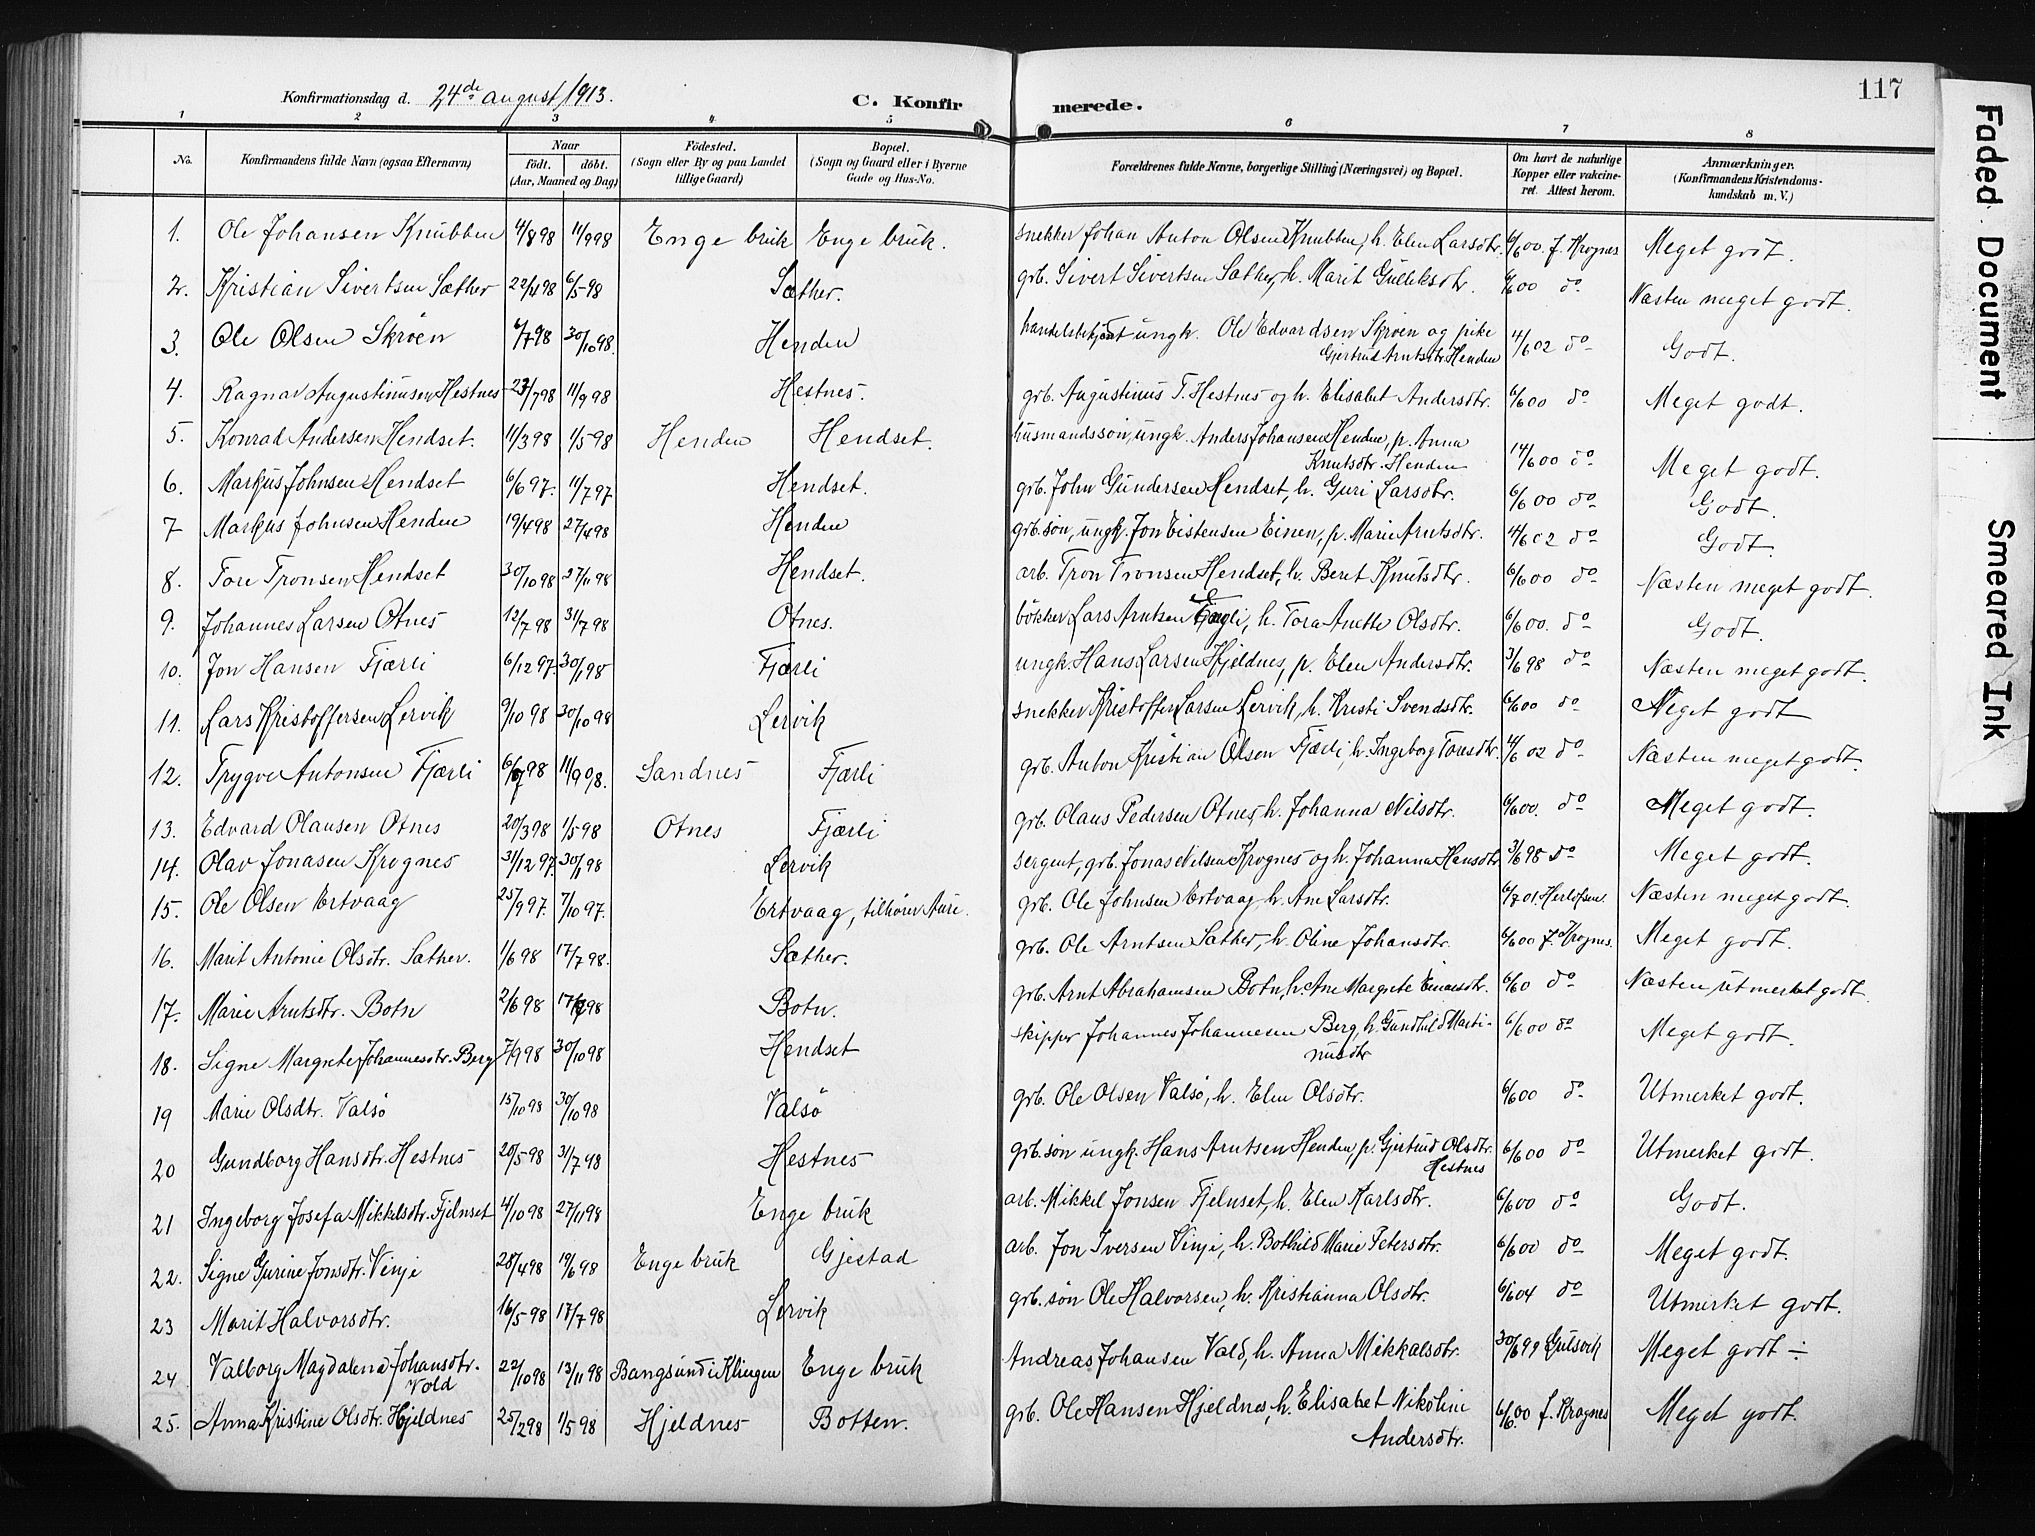 117
Konfirmationsdag d. 24de august 1913.
C. Konfirmerede.
1 2 3 4 5 6 7 8
No.
Konfirmandens fulde Navn (ogsaa Efternavn)
Naar
født. døbt.
(Aar, Maaned og Dag)
Fødested.
(Sogn eller By og paa Landet
tillige Gaard)
Bopæl.
(Sogn og Gaard eller i Byerne
Gade og Hus-No.
Forældrenes fulde Navne, borgerlige Stilling (Næringsvei) og Bopæl.
Om havt de naturlige
Kopper eller vakcine-
ret. Attest herom.
Anmærkninger.
(Konfirmandens Kristendoms-
kundskab m. V.)
1. Ole Johansen Knubben 4/8 98 11/9 98 Enge bruk Enge bruk. snekker Johan Anton Olsen Knubben, h. Elen Larsdtr. 6/6 00 f. Krognes Meget godt.
2. Kristian Sivertsen Sæther 22/4 98 6/5 98 Sæther. grb. Sivert Sivertsen Sæther, h. Marit Gulliksdtr. 6/6 00 do Næsten meget godt.
3. Ole Olsen Skrøen 6/7 98 30/10 98. Henden handelsbetjent ungk. Ole Edvardsen Skrøen og pike
Gjertrud Arntsdtr. Henden 14/6 02 do Godt.
4. Ragnar Augustinusen Hestnes 23/7 98 11/9 98 Hestnes. grb. Augustinus T. Hestnes og h. Elisabet Andersdtr. 6/6 00 do Meget godt.
5. Konrad Andersen Hendset. 11/3 98 1/5 98 Henden Hendset. husmandssøn, ungk. Anders Johansen Henden, p. Anna
Knutsdtr. Henden 14/6 00 do Meget godt.
6. Markus Johnsen Hendset 6/6 97. 11/7 97 Hendset. grb. John Gundersen Hendset, h. Guri Larsdtr. 6/6 00 do Godt.
7 Markus Johnsen Henden 19/4 98 27/4 98 Henden grb. søn, ungk. Jon Eistensen Einen, p. Marie Arntsdtr. 14/6 02 do Godt.
8. Tore Tronsen Hendset 30/10 98 27/11 98 Hendset. arb. Tron Tronsen Hendset, h. Beret Knutsdtr. 6/6 00 do Næsten meget godt.
9. Johannes Larsen Otnes 12/7 98 31/7 98 Otnes. bøkker Lars Arntsen, h. Tora Anette Olsdtr. 6/6 00. do Godt.
10. Jon Hansen Fjærli 6/12 97. 30/1 98 Fjærli ungk. Hans Larsen Hjeldnes, p. Elen Andersdtr. 3/6 98 do Næsten meget godt.
11. Lars Kristoffersen Lervik 9/10 98 30/10 98 Lervik snekker Kristoffer Larsen Lervik, h. Kristi Svendsdtr. 6/6 00 do Meget godt
12. Trygve Antonsen Fjærli 6/7 98 11/9 98. Sandnes Fjærli grb. Anton Kristian Olsen Fjærli, h. Ingeborg Toresdtr. 14/6 02 do Næsten meget godt.
13. Edvard Olausen Otnes 20/3 98 1/5 98 Otnes Fjærli grb. Olaus Pedersen Otnes, h. Johanna Nilsdtr. 6/6 00. do Meget godt.
14. Olav Jonasen Krognes 31/12 97. 30/1 98 Lervik sergent, grb. Jonas Nilsen Krognes og h. Johanna Hansdtr. 3/6 98 do Meget godt.
15. Ole Olsen Ertvaag 25/9 97. 7/10 97. Ertvaag, tilhører Aure. grb. Ole Johnsen Ertvaag, h. Ane Larsdtr. 6/7 01. Herlofsen. Næsten meget godt.
16. Marit Antonie Olsdtr. Sæther. 1/6 98 17/7 98. Sæther. grb. Ole Arntsen Sæther, h. Oline Johansdtr. 6/6 00 f. Krognes. Meget godt.
17. Marie Arntsdtr. Botn 2/6 98 17/7 98 Botn. grb. Arnt Abrahamsen Botn, h. Ane Margrete Einarsdtr. 6/6 0 do Næsten utmerket godt.
18. Signe Margrete Johannesdtr. Berg 7/9 98 30/10 98 Hendset skipper Johannes Johannesen Berg, h. Gundhild Marti-
nusdtr 6/6 00 do Meget godt.
19 Marie Olsdtr. Valsø 15/10 98 30/10 98 Valsø grb. Ole Olsen Valsø, h. Elen Olsdtr. 6/6 00 do Utmerket godt.
20 Gundborg Hansdtr. Hestnes 20/5 98 31/7 98 Hestnes grb. søn ungk. Hans Arntsen Henden, p. Gjertrud Olsdtr.
Hestnes 6/6 00 do Utmerket godt.
21 Ingeborg Josefa Mikkelsdtr. Fjelnset 4/10 98 27/11 98 Enge bruk arb. Mikkel Jonsen Fjelnset, h. Elen Karlsdtr. 6/6 00 do Godt.
22. Signe Gurine Jonsdtr. Vinje 28/4 98 19/6 98 Enge bruk Gjestad arb. Jon Iversen Vinje, h. Bothild Marie Petersdtr. 6/6 00 do Meget godt.
23 Marit Halvorsdtr. 16/5 98 17/7 98 Lervik grb. søn Ole Halvorsen, h. Kristianna Olsdtr. 6/6 04 do Utmerket godt.
24 Valborg Magdalena Johansdtr.
Vold 22/10 98 13/11 98 Bangsund i Klingen Enge bruk Andreas Johansen Vald, h. Anna Mikkalsdtr. 30/6 99 Gulsvik Meget godt ÷
25. Anna Kristine Olsdtr. Hjeldnes 25/2 98 1/5 98 Hjeldnes Botten. grb. Ole Hansen Hjeldnes, h. Elisabet Nikoline
Andersdtr. 6/6 00 f. Krognes Meget godt.
Faded Document
Smeared Ink